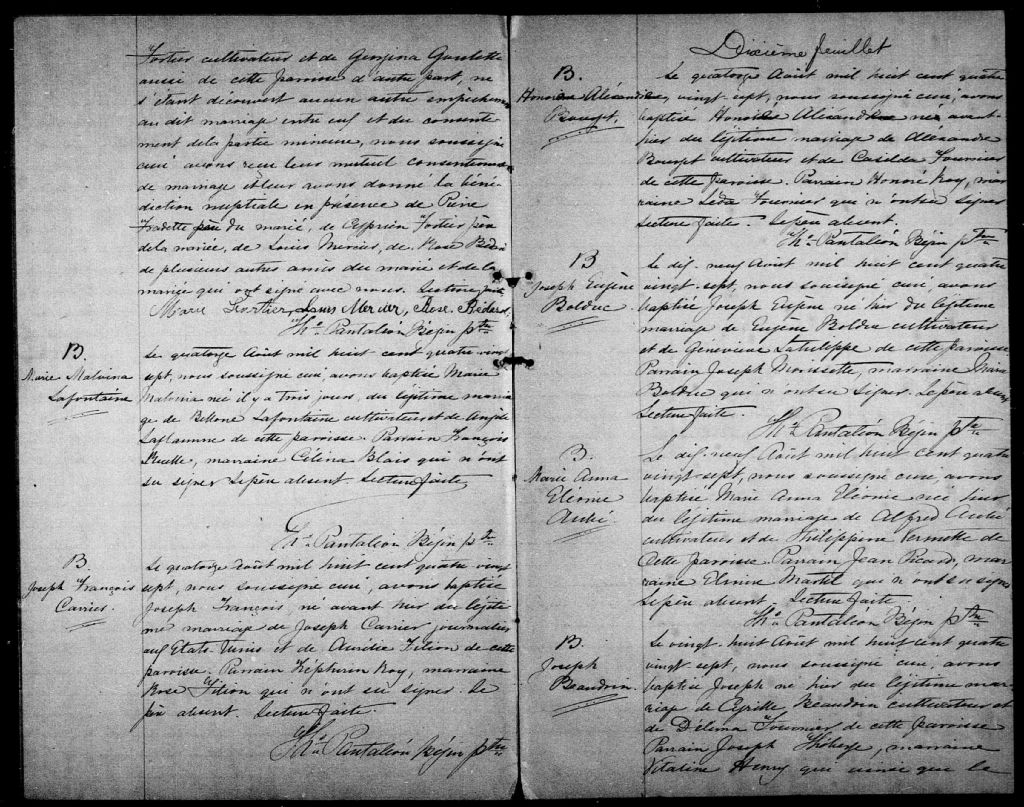 Fortier cultivateur et de Georgina Goulette
aussi de cette paroisse d'autre part, ne
s'étant découvert aucun autre empêchement
au dit mariage entre eux et du consente
ment de la partie mineure, nous soussigné
curé avons reçu leur mutuel consentement
de mariage et leur avons donné la béné
diction nuptiale en présence de Pierre
Fradette père du marié, de Cyprien Fortier père
de la mariée, de Louis Mercier, de Rose Bédard
de plusieurs autres amis du marié et de la
mariée qui ont signé avec nous. Lecture faite
Marie Fortier, Louis Mercier, Rose Bédard,
Ths. Pantaléon Béjin ptre
B.
Marie Malvina
Lafontaine
Le quatorze Août mil huit cent quatre vingt
sept, nous soussigné curé, avons baptisé Marie
Malvina née il y a trois jours, du légitime maria
ge de Lafontaine cultivateur et de
Laflamme de cette paroisse. Parrain François
Ruelle, marraine Célina Blais qui n'ont
su signer. Le père absent. Lecture faite,
Ths. Pantaléon Béjin ptre
B.
Joseph François
Carrier.
Le quatorze Août mil huit cent quatre vingt
sept, nous soussigné curé, avons baptisé
Joseph François, né avant hier du légiti
me mariage de Joseph Carrier journalier
aux Etats Unis et de Aurélie Filion de cette
paroisse. Parrain Zéphirin Roy, marraine
Rose Filion qui n'ont su signer. Le
père absent. Lecture faite.
Ths. Pantaléon Béjin ptre
Dixième feuillet
B.
Honoré Alexandre
Bourget.
Le quatorze Août mil huit cent quatre
vingt-sept, nous soussigné curé, avons
baptisé Honoré Alexandre né avant-
hier du légitime mariage de Alexandre
Bourget cultivateur et de Casilda Fournier
de cette paroisse. Parrain Honoré Roy, mar
raine Léda Fournier qui n'ont su signer
Lecture faite. Le père absent.
Ths. Pantaléon Béjin ptre
B
Joseph Eugène
Bolduc.
Le dix-neuf Août mil huit cent quatre
vingt-sept, nous soussigné curé, avons
baptisé Joseph Eugène né hier du légitime
mariage de Eugène Bolduc cultivateur
et de Geneviève Latulippe de cette paroisse
Parrain Joseph Morissette, marraine
Bolduc qui n'ont su signer. Le père absent
Lecture faite.
Ths. Pantaléon Béjin ptre
B.
Marie Anna
Eléonie
Audé.
Le dix-neuf Août mil huit cent quatre
vingt-sept, nous soussigné curé, avons
baptisé Marie Anna Eléonie née hier
du légitime mariage de Alfred Audé
cultivateur et de Philippine Vermette de
Cette paroisse. Parrain Jean Picard, mar
raine Martel qui n'ont su signer
Le père absent. Lecture faite.
Ths. Pantaléon Béjin ptre
B.
Joseph
Beaudoin.
Le vingt-huit Août mil huit cent quatre
vingt-sept, nous soussigné curé, avons
baptisé Joseph né hier du légitime mar
iage de Cyrille Beaudoin cultivateur et
de Délima Fournier de cette paroisse
Parrain Joseph Théberge, marraine
Vitaline Henry qui ainsi que le